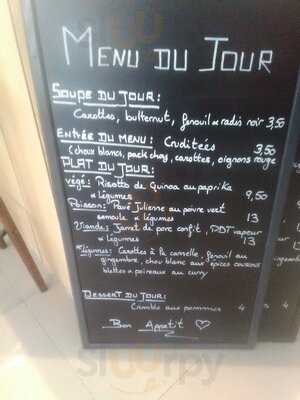 MENU DU JOUR
SOUPE DU JOUR:
Carottes, butternut, fenouil & radis noir 3,50
ENTRÉE DU MENU: Cruditeés 3,50
(choux blancs, pack choy, carottes, oignons rouge
PLAT DU JOUR:
végé: Risotto de Quinoa au paprika
& légumes 9,50
Poisson: Pavé Julienne au poivre vert
semoule & légumes 13
Viande: Jarret de porc confit, PDT vapeur
& légumes 13
Légumes: Carottes à la cannelle, fenouil au
gingembre, chou blanc aux épices couscous
blettes & poireaux au curry
DESSERT DU JOUR:
Crumble aux pommes 4
Bon Appetit